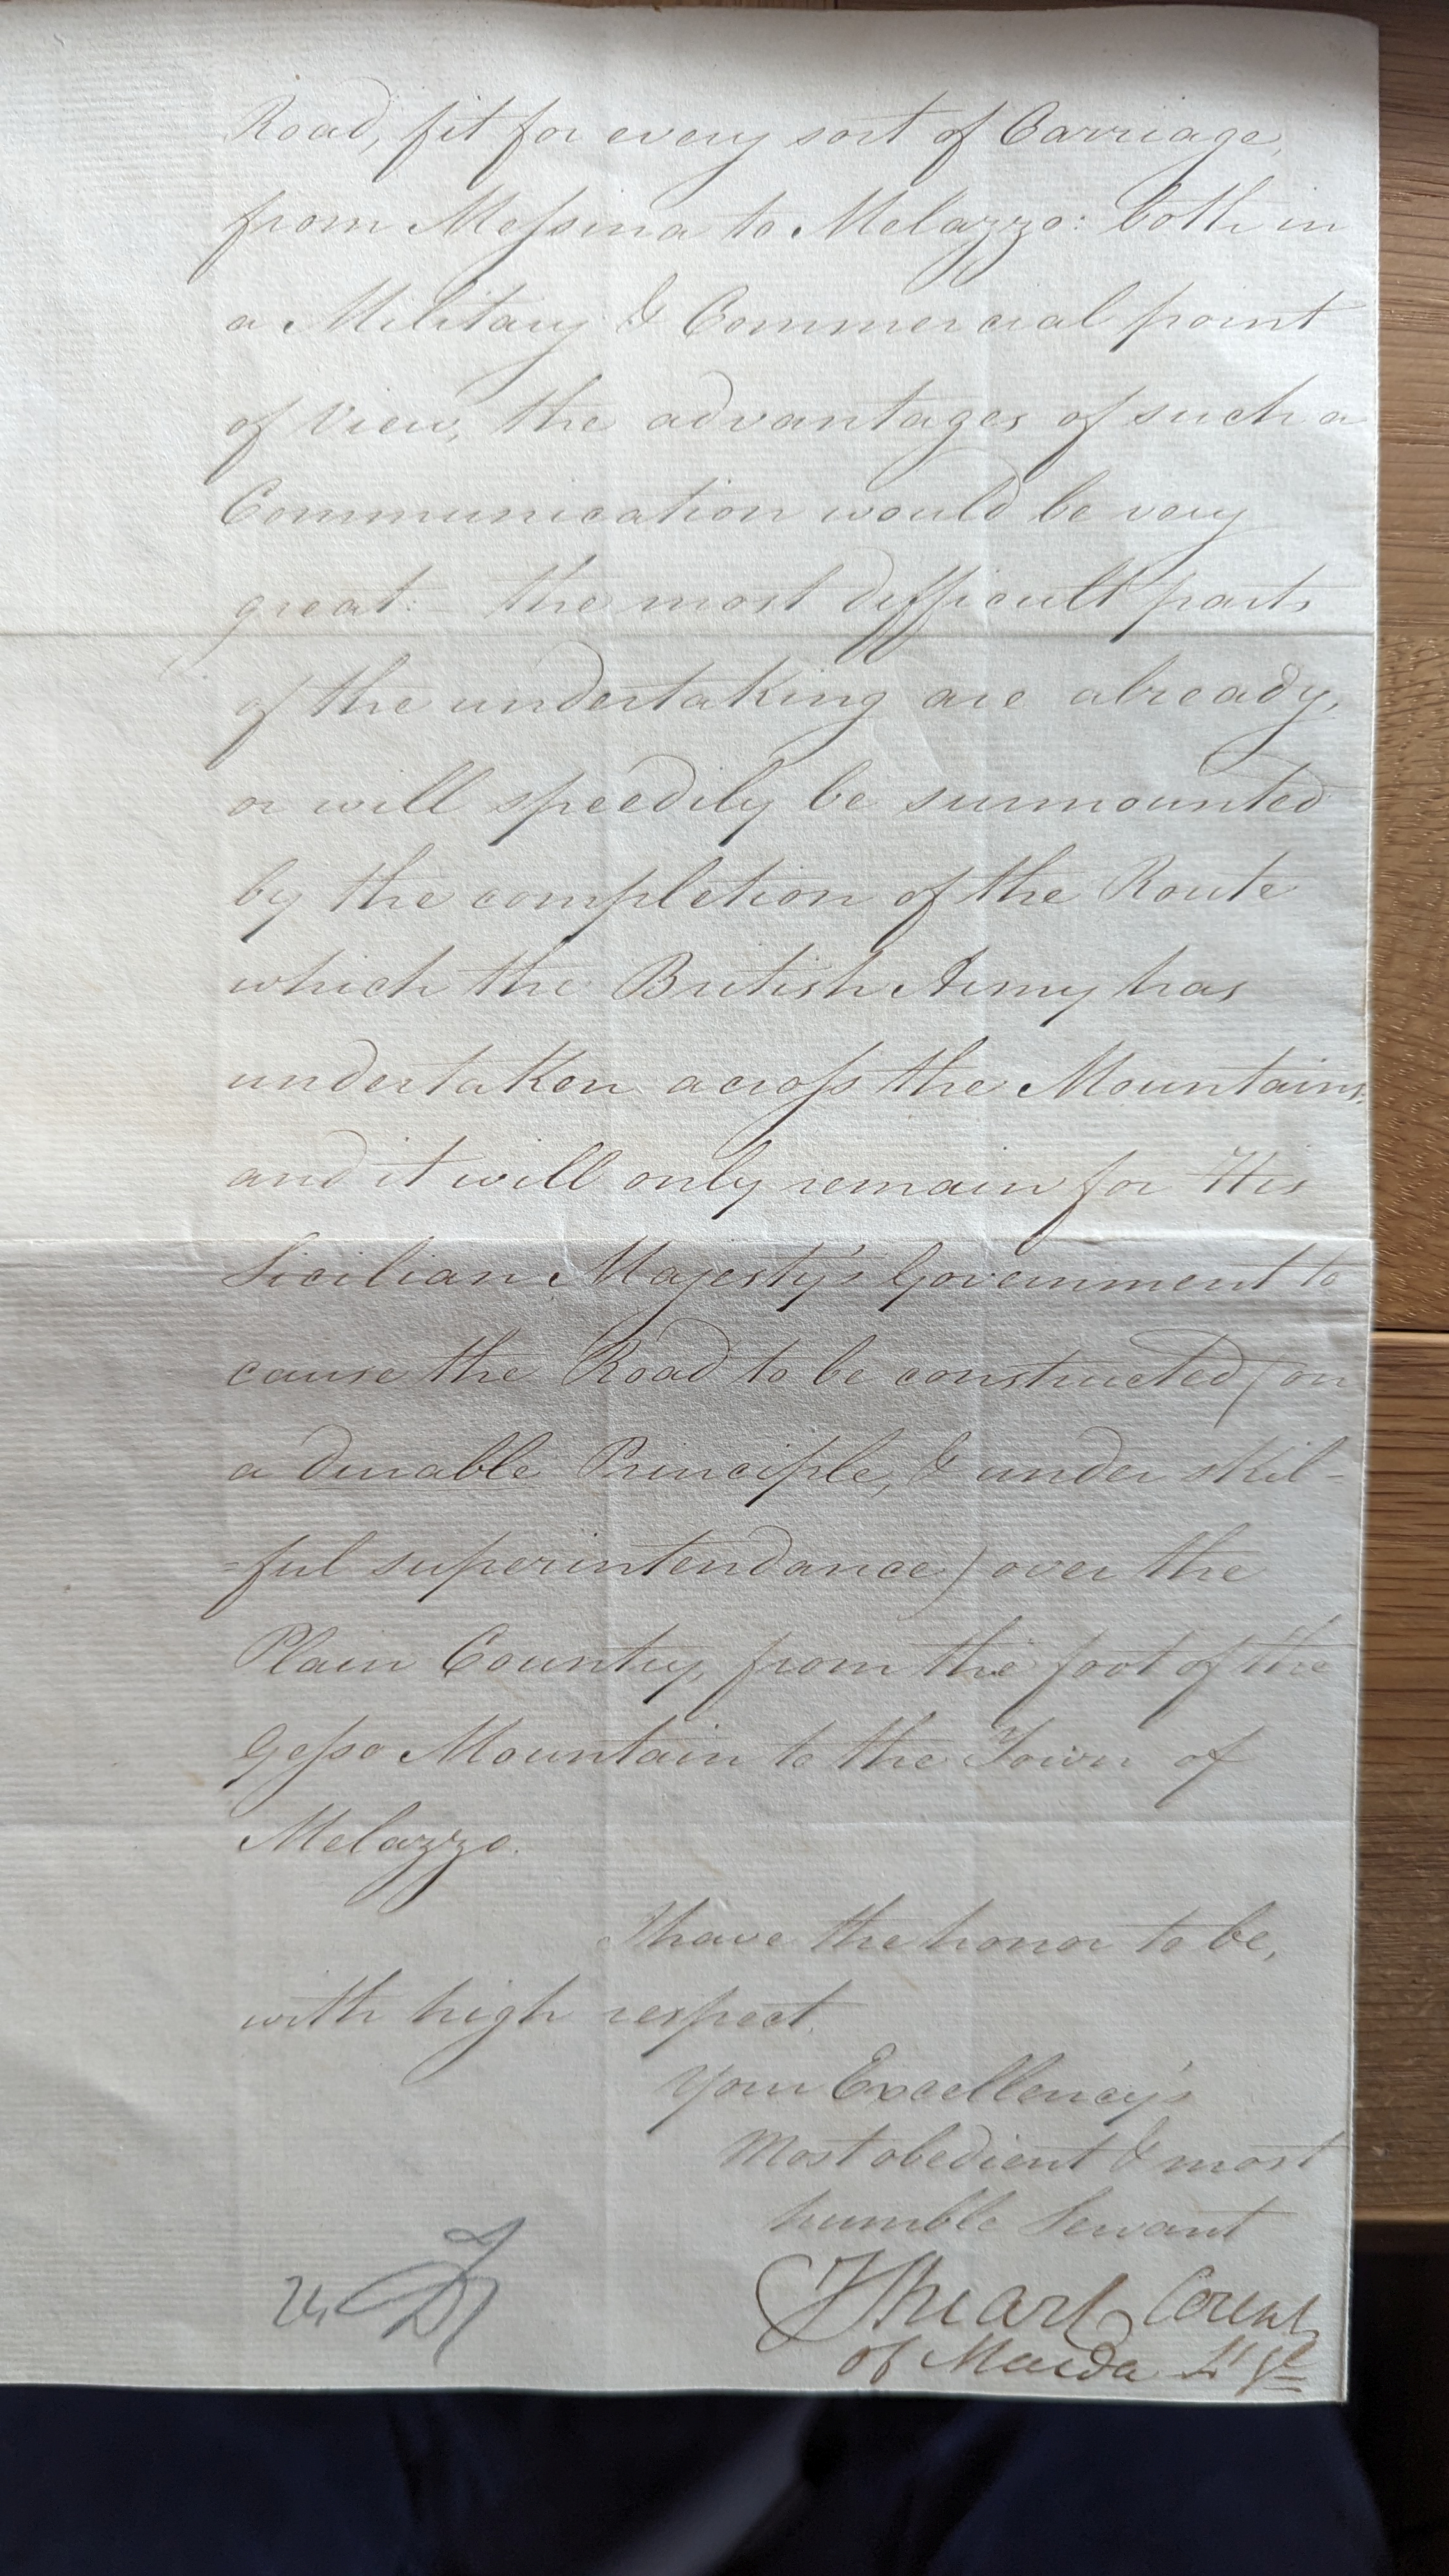 Road, fit for every sort of Carriage,
from Meſsina to Melazzo: both in
a Military & Commercial point
of View, the advantages of such a
Communication would be very
great: – the most difficult parts
of the undertaking are already,
or will speedily be surmounted
by the completion of the Route
which the British Army has
undertaken acroſs the Mountains;
and it will only remain for His
Sicilian Majesty's Government to
cause the Road to be constructed (on
a durable Principle, & under skil-
-ful superintendance) over the
Plain Country, from the foot of the
Geſso Mountain to the Town of
Melazzo.
I have the honor to be,
with high respect,
Your Excellency's
Most obedient & most
humble Servant
J Stuart Count
of Maida Lt Gl